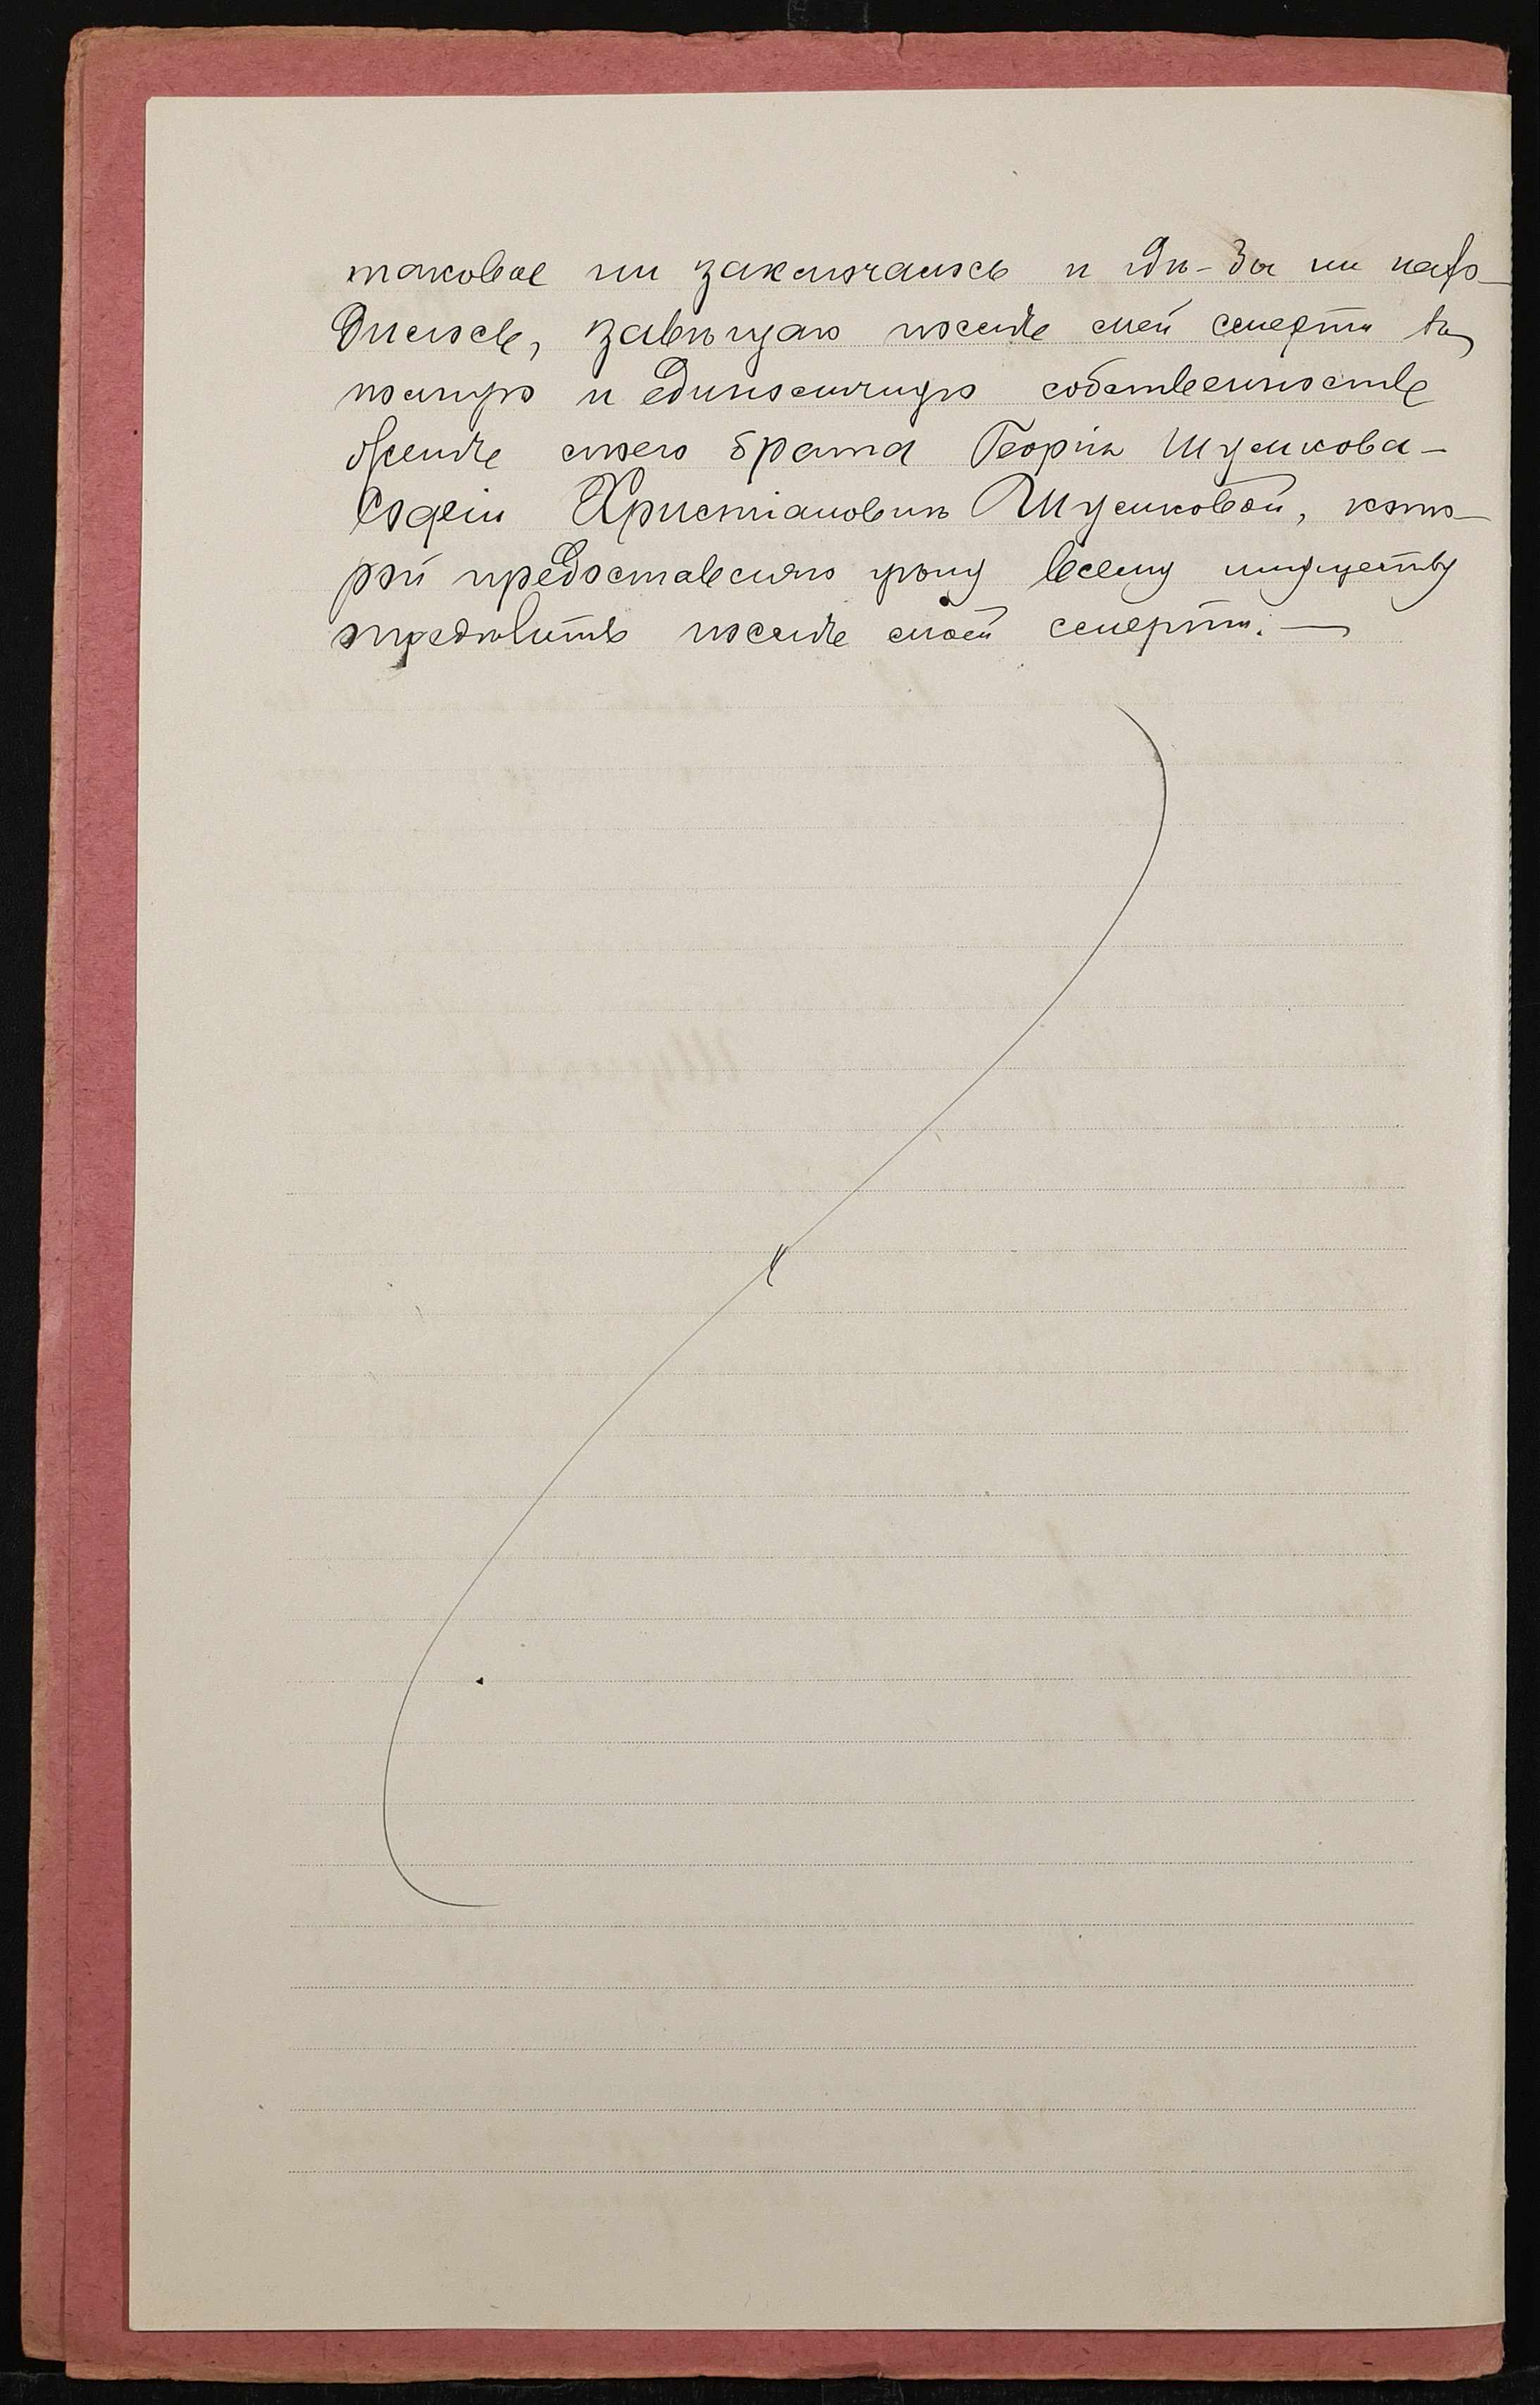 таковое ни заключалось и гдѣ-бы ни нахо-
дилось, завѣщаю послѣ моей смерти въ
полную и единоличную собственность
женѣ моего брата Георгія Шумкова -
Софіи Христіановнѣ Шумковой, кото-
рой предоставляю цѣну всему имуществу
опредѣлить послѣ моей смерти. —